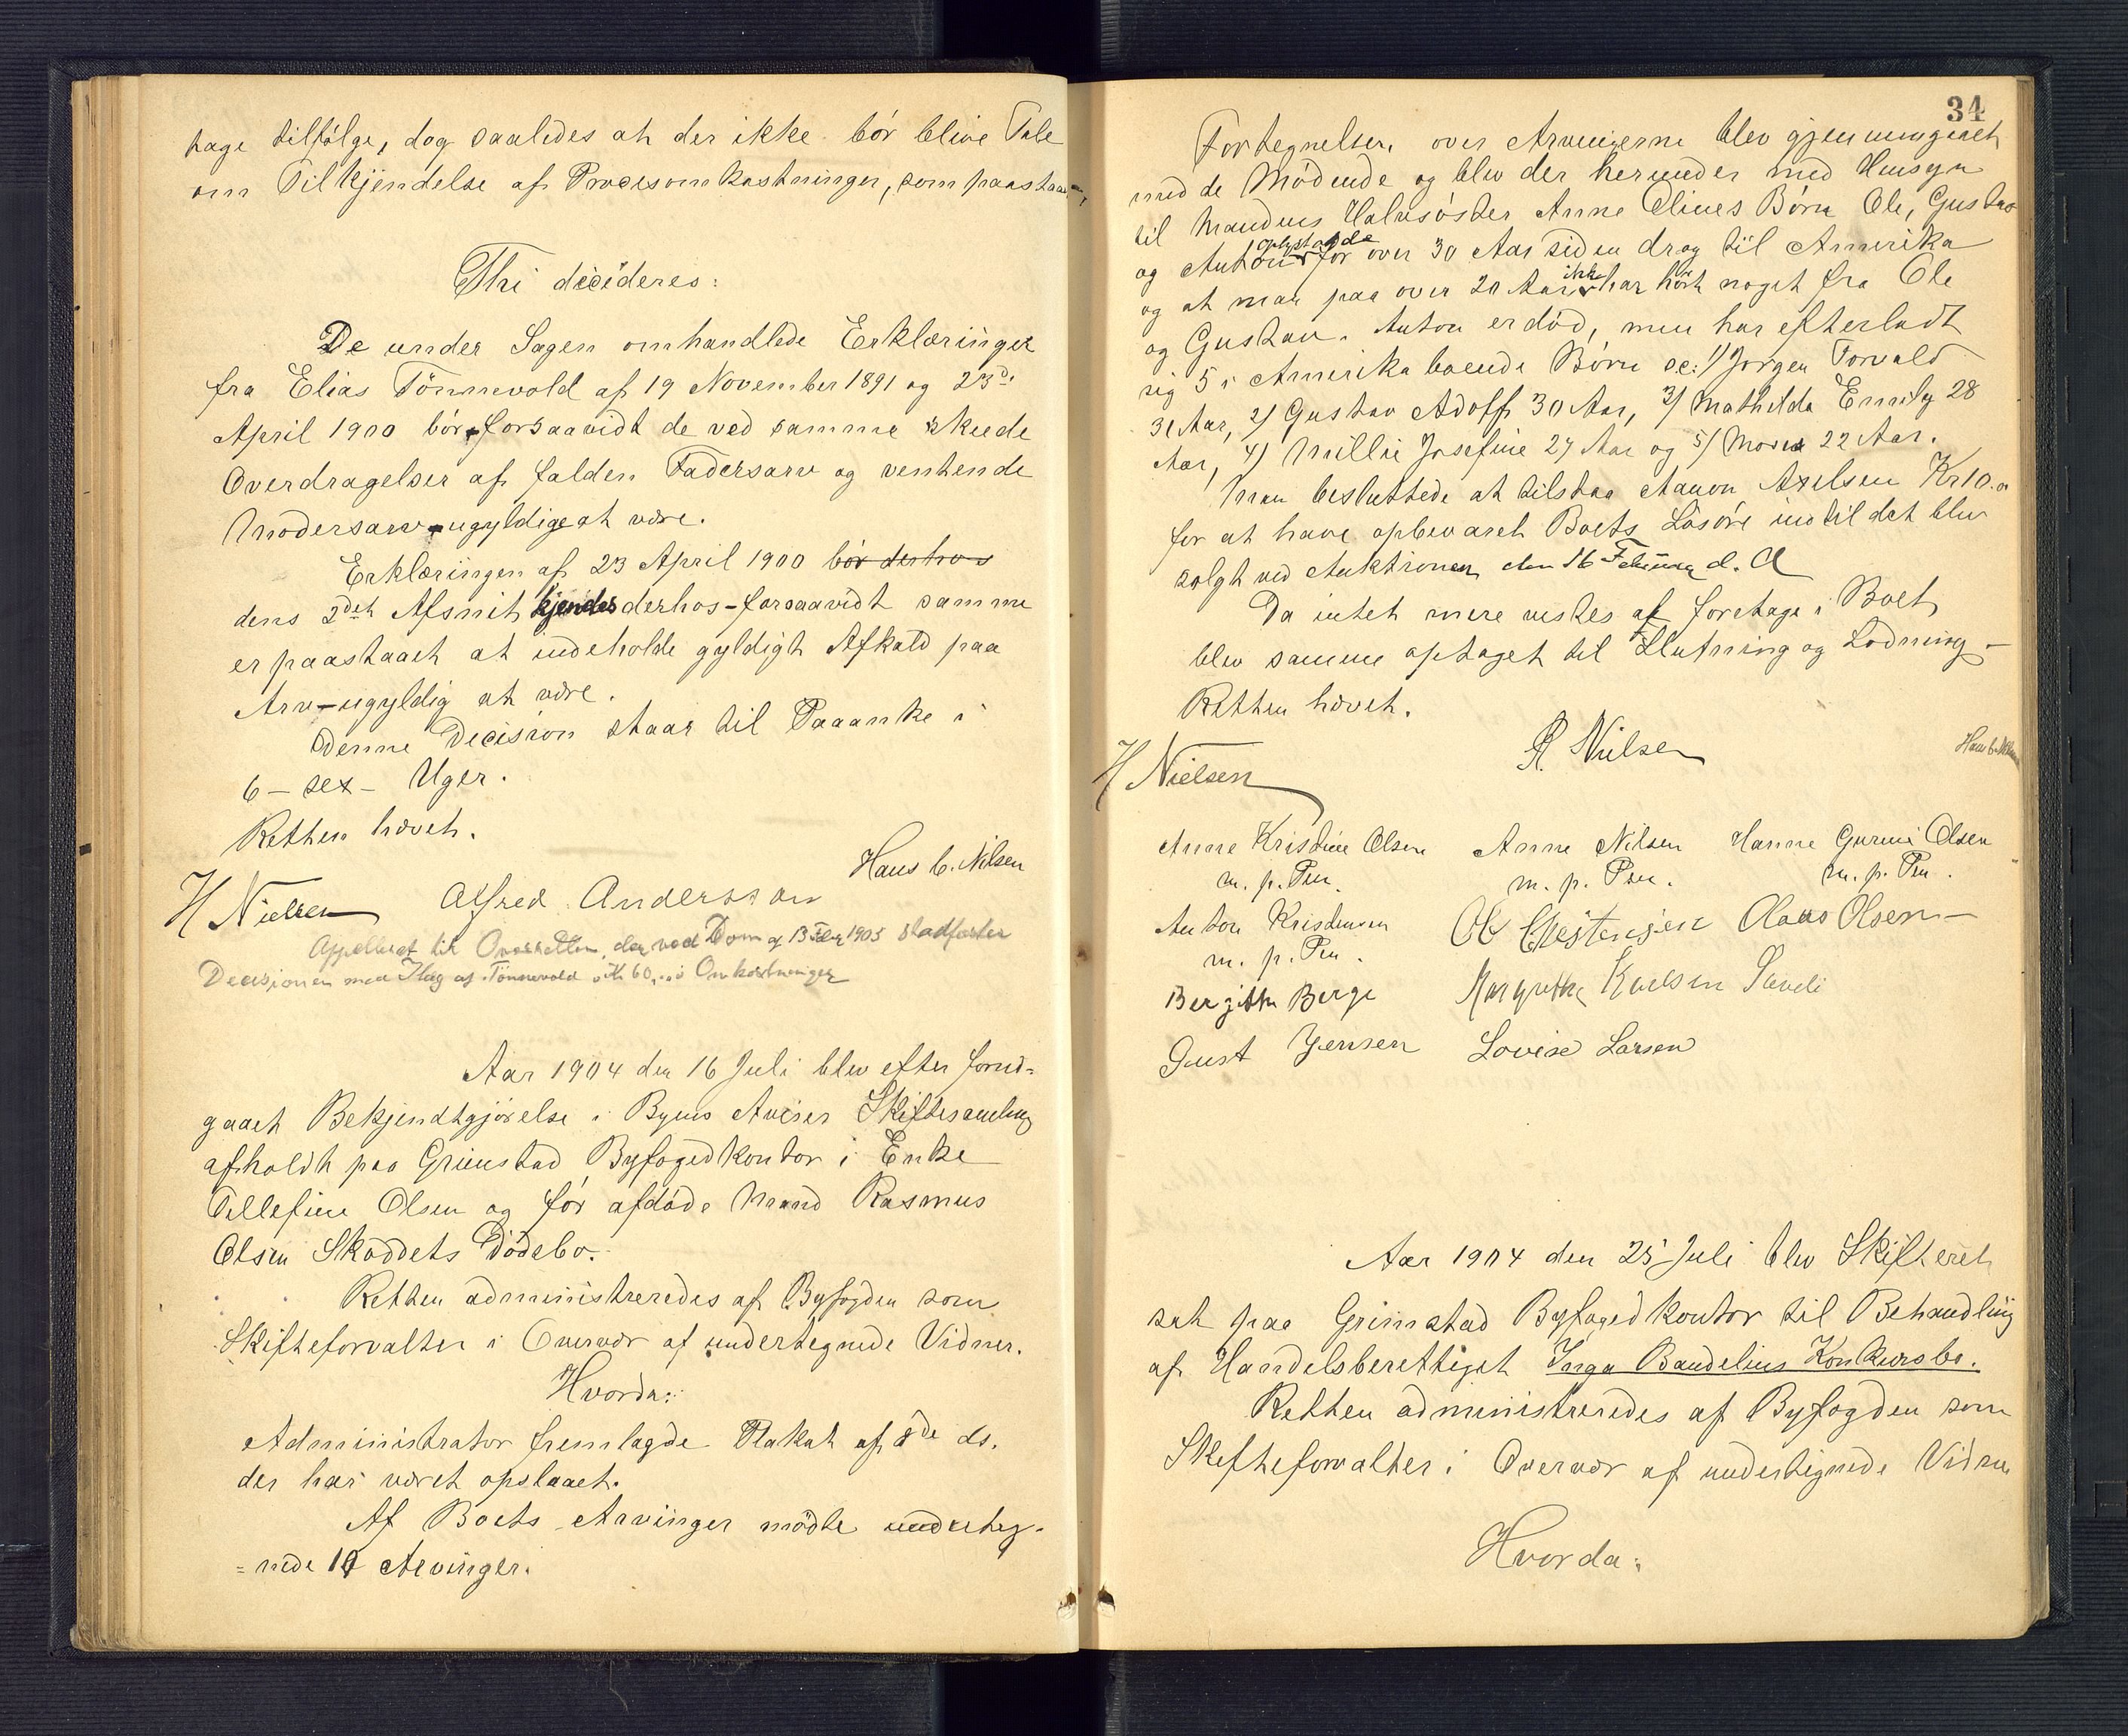 tage tilfölge, dog saaledes at der ikke bör blive Tale
om Tilkjendelse af Procesomkostninger, som paastaaet,
Thi decideres:
De under Sagen omhandlede Erklæringer
fra Elias Tönnevold af 19 November 1891 og 23d.
April 1900 bör, forsaavidt de ved samme skeede
Overdragelser af falden Fadersarv og ventende
Modersarv, ugyldige at være.
Erklæringen af 23 April 1900 bör derhos
dens 2det Afsnit kjendes derhos - forsaavidt samme
er paastaaet at indeholde gyldigt Afkald paa
Arv - ugyldig at være.
Denne Decision staar til Paaanke i
6 - sex - Uger.
Retten hævet.
Hans C. Nilsen
H Nielsen Alfred Anderssen
Appelleret til Overretten, der ved Dom af 13 Febr 1905 stadfæster
Decisionen med Ilæg af Tönnevold Kr 60,.. i Omkostninger
Aar 1904 den 16 Juli blev efter forud-
gaaet Bekjendtgjörelse i Byens Aviser Skiftesamling
afholdt paa Grimstad Byfogedkontor i Enke
Tellefine Olsen og för afdöde Mand Rasmus
Olsen Skoddets Dödsbo.
Retten administreredes af Byfogden som
Skifteforvalter i Overvær af undertegnede Vidner.
Hvorda:
Administrator fremlagde Plakat af 8de ds.
der har været opslaaet.
Af Boets Arvinger mödte underteg-
=nede 10 Arvinger.
34
Fortegnelsen over Arvingerne blev gjennemgaaet
med de Mödende og blev der herunder med Hensyn
til Mandens Halvsöster Anne Elines Börn Ole, Gustav
og Anton oplyst at de for over 30 Aar siden drog til Amerika
og at man paa over 20 Aar ikke har hört noget fra Ole
og Gustav. Anton er död, men har efterladt
sig 5 i Amerika boende Börn sc: 1) Jörgen Torvald
31 Aar, 2) Gustav Adolf 30 Aar, 3) Mathilda Emily 28
Aar, 4) Millie Josefine 27 Aar og 5) 22 Aar.
Man besluttede at tilstaa Aanon Axelsen Kr 10.
for at have opbevaret Boets Lösöre indtil det blev
solgt ved Auktionen den 16 Februar d. A
Da intet mere vistes at foretage i Boet
blev samme optaget til Slutning og Lodning -
Retten hævet.
H Nielsen R. Nilsen Hans C. Nilsen
Anne Kristine Olsen Anne Nilsen Hanne Gurine Olsen
m. p. Pen. m. p. Pen. m. p. Pen.
Anton Kristensen Ole Christensen Olaus Olsen -
m. p. Pen.
Bergitte Berge Margrethe Karlsen
Gust Jensen Lovise Larsen
Aar 1904 den 25 Juli blev Skifteret
sat paa Grimstad Byfogedkontor til Behandling
af Handelsberettiget Inga Bandelius Konkursbo.
Retten administreredes af Byfogden som
Skifteforvalter i Overvær af undertegnede Vidner
Hvorda: